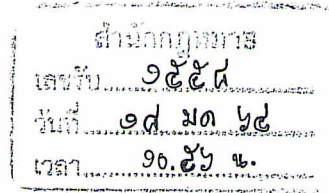 สำนักกฎหมาย
เลขรับ ๑๕๕๘
วันที่ ๑๘ มค ๖๔
เวลา ๑๐.๕๖ น.